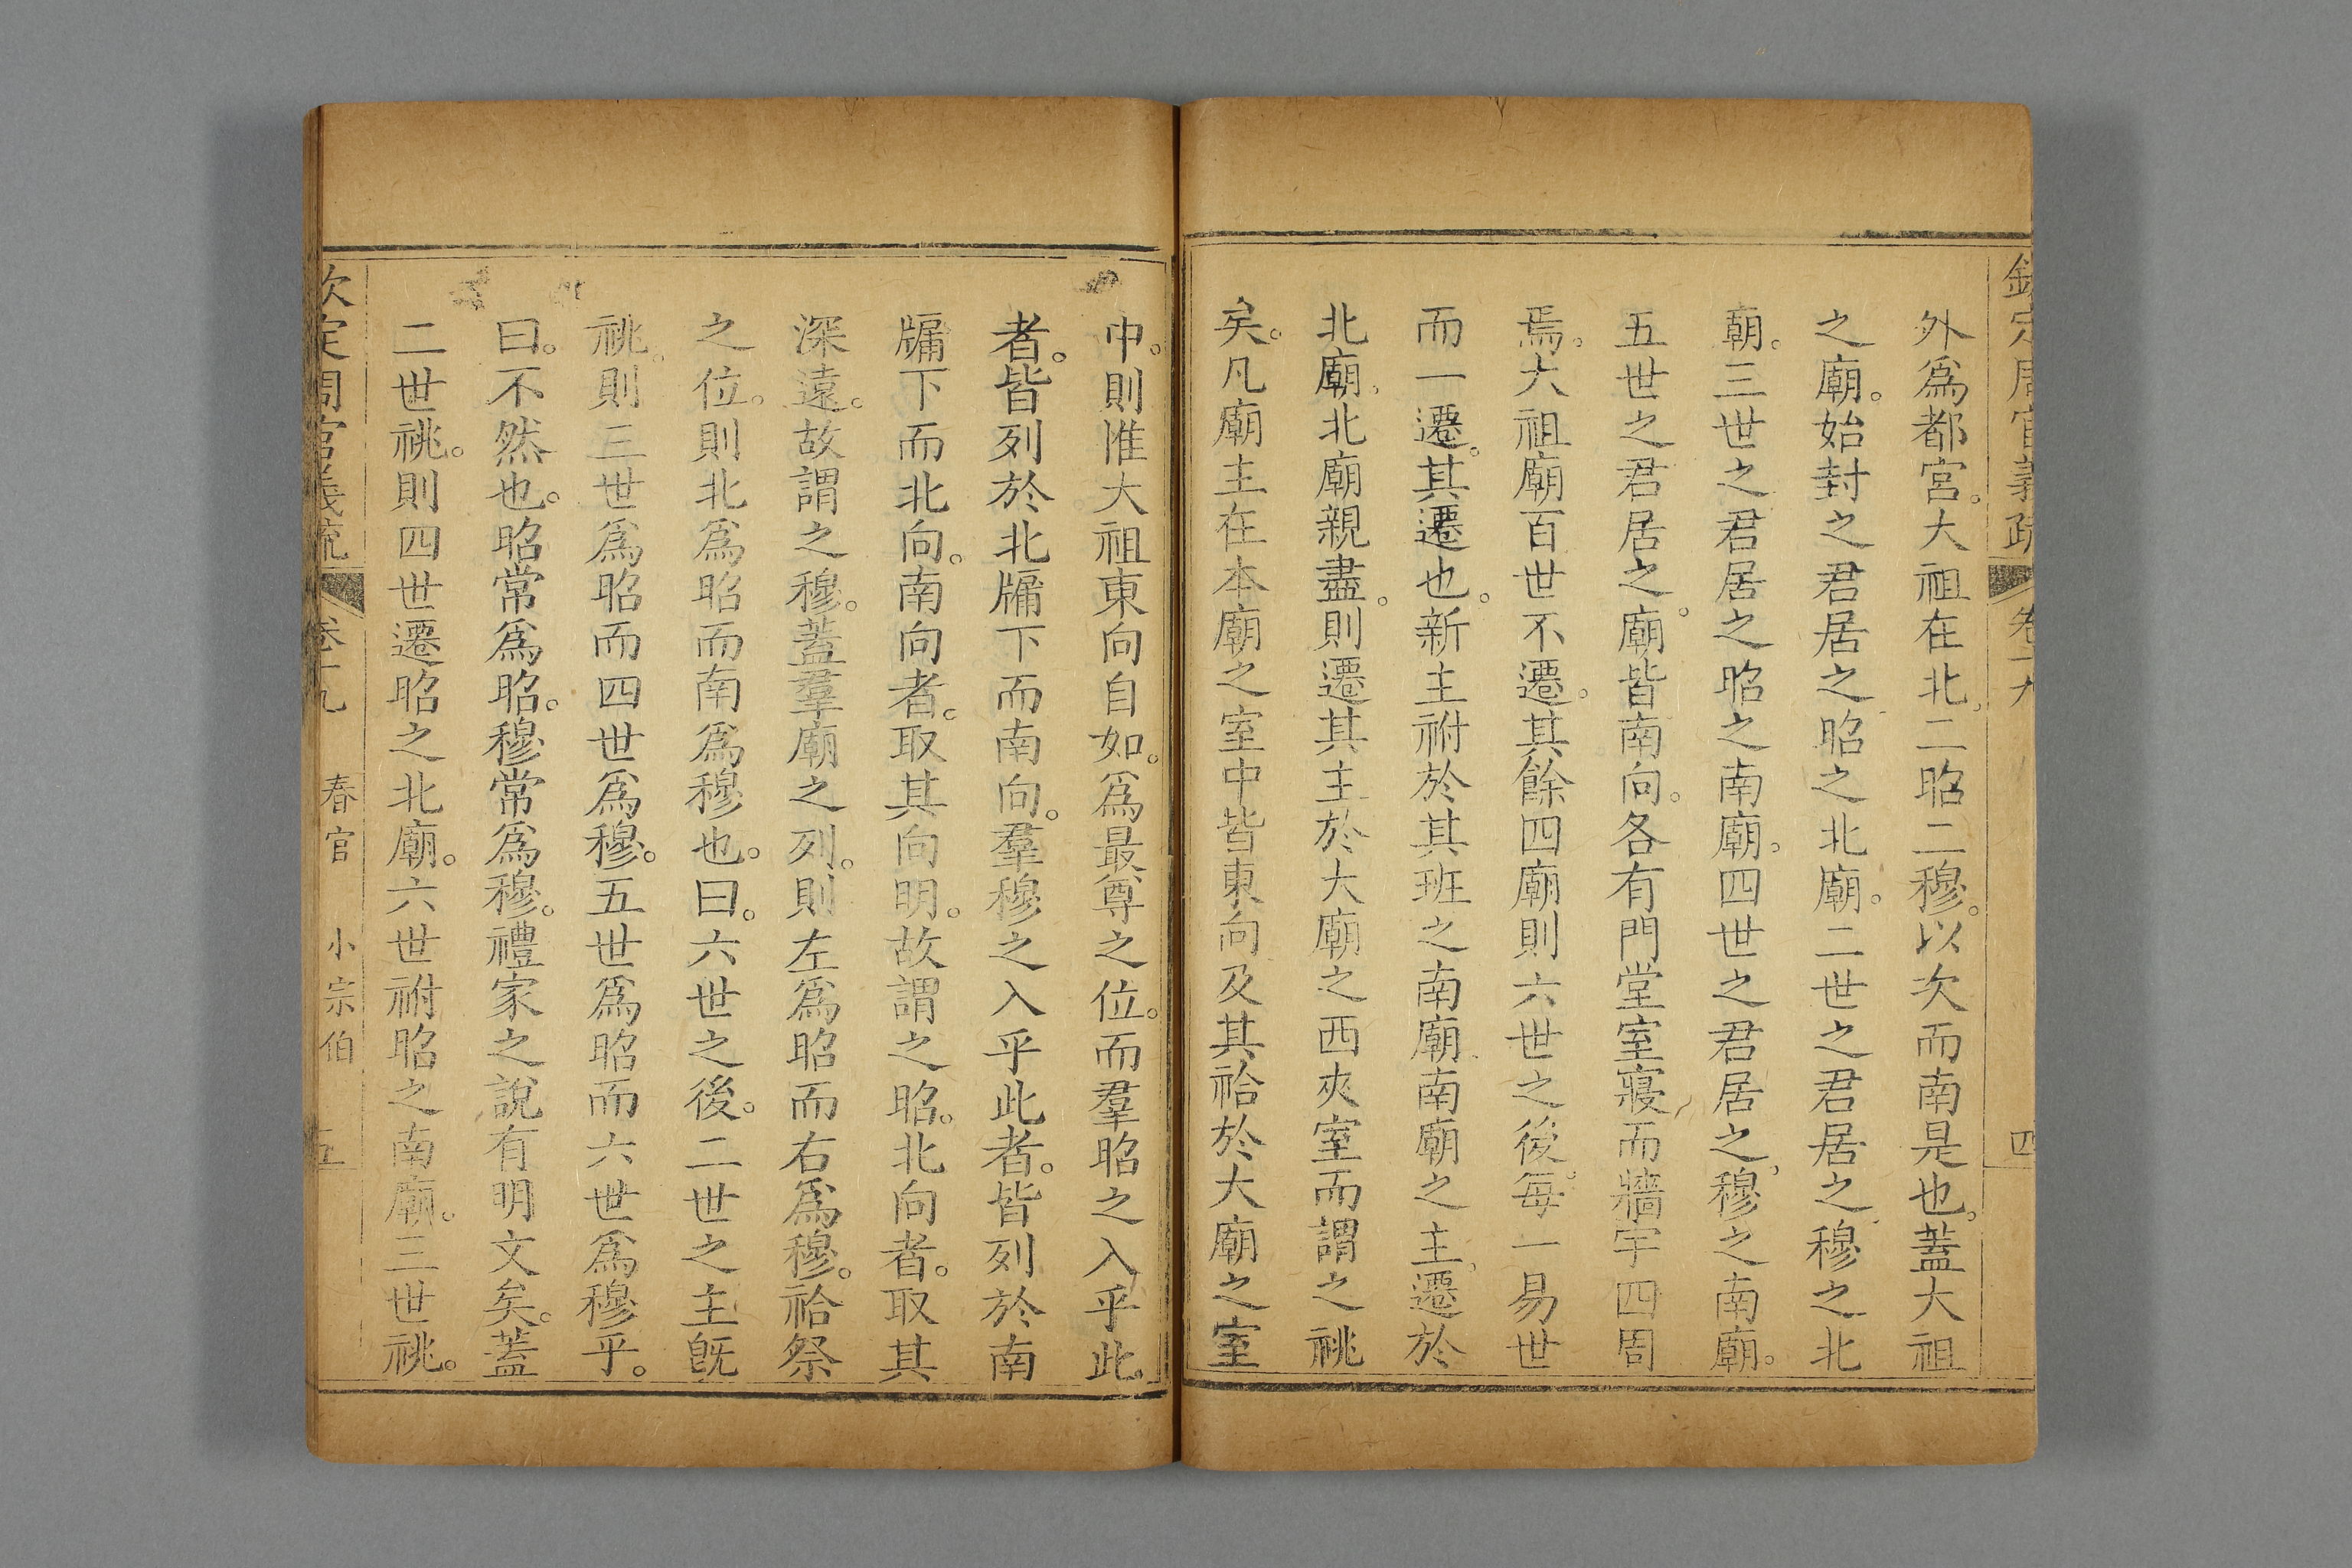 欽定周官義疏 卷十九 四
外爲都宮。大祖在北。二昭二穆。以次而南是也。蓋大祖
之廟。始封之君居之昭之北廟。二世之君居之穆之北
朝。三世之君居之昭之南廟。四世之君居之。穆之南廟。
五世之君居之。廟皆南向。各有門堂室寢而牆宇四周
焉。大祖廟百世不遷。其餘四廟則六世之後。每一易世
而一遷。其遷也。新主祔於其班之南廟。南廟之主。遷於
北廟。北廟親盡。則遷其主於大廟之西夾室而謂之祧
矣。凡廟主在本廟之室中皆東向及其祫於大廟之室
中。則惟大祖東向自如。爲最尊之位。而羣昭之入乎此。
者。皆列於北牖下而南向。羣穆之入乎此者。皆列於南
牖下而北向。南向者。取其向明。故謂之昭。北向者。取其
深遠。故謂之穆。蓋羣廟之列。則左爲昭而右爲穆。祫祭
之位。則北爲昭而南爲穆也。曰。六世之後。二世之主旣
祧。則三世爲昭而四世爲穆。五世爲昭而六世爲穆乎。
曰。不然也。昭常爲昭。穆常爲穆。禮家之說有明文矣。蓋
二世祧。則四世遷昭之北廟。六世祔昭之南廟。三世祧。
欽定周官義疏 卷十九 春官 小宗伯 五